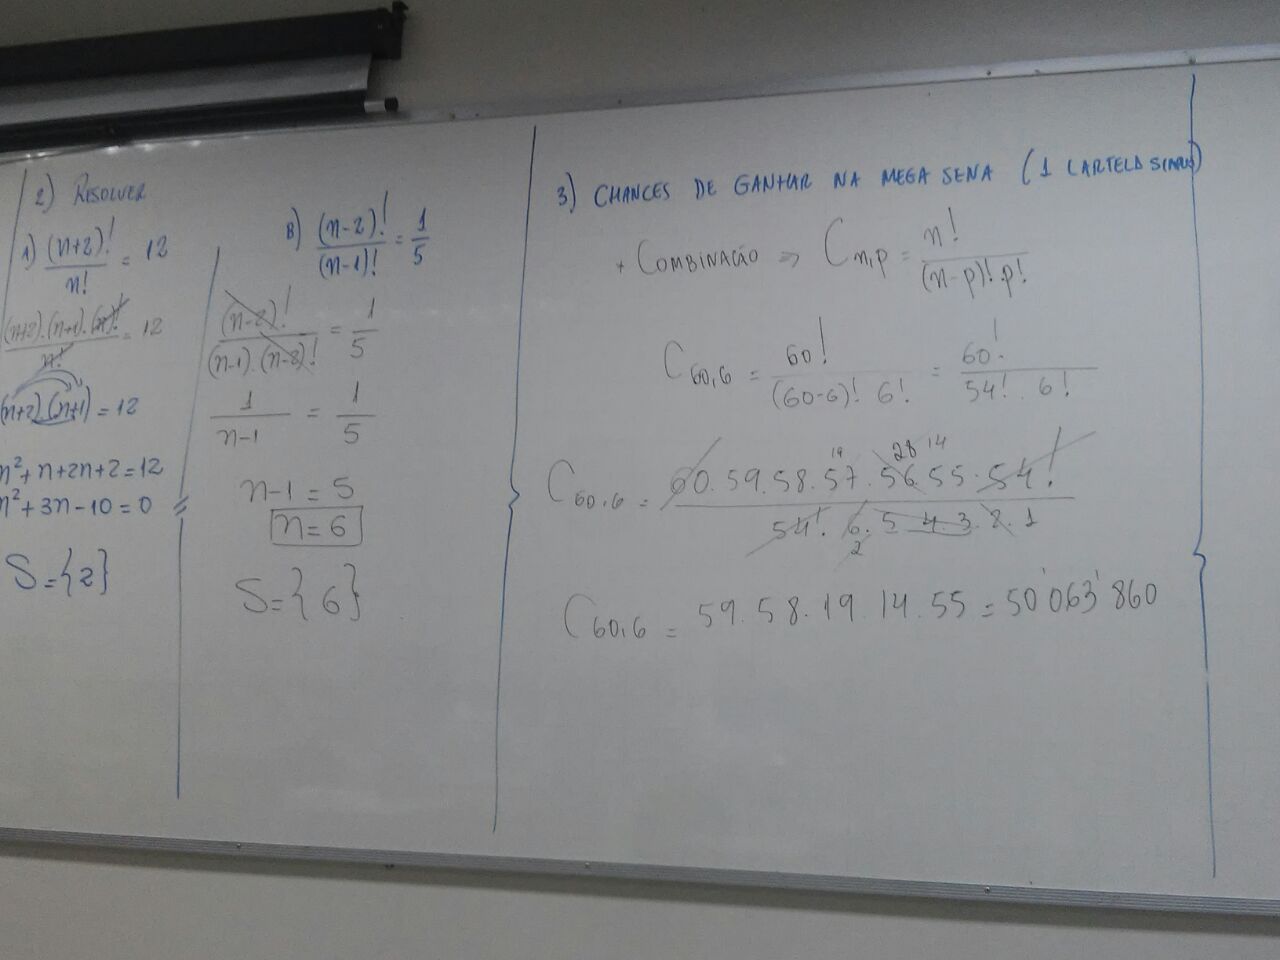 2) RESOLVER
A) (n+2)! / n! = 12
(n+2).(n+1).(n)! / n! = 12
(n+2).(n+1) = 12
n²+n+2n+2=12
n²+3n-10=0
S={2}
B) (n-2)! / (n-1)! = 1/5
(n-2)! / (n-1).(n-2)! = 1/5
1 / n-1 = 1/5
n-1=5
n=6
S={6}
3) CHANCES DE GANHAR NA MEGA SENA (1 CARTELA SIMPLES)
+ COMBINAÇÃO ⇒ Cn,p = n! / (n-p)! p!
C60,6 = 60! / (60-6)! 6! = 60! / 54! 6!
19 28 14
C60,6 = 60.59.58.57.56.55.54! / 54!.6.5.4.3.2.1
2
C60,6 = 59.58.19.14.55 = 50'063'860